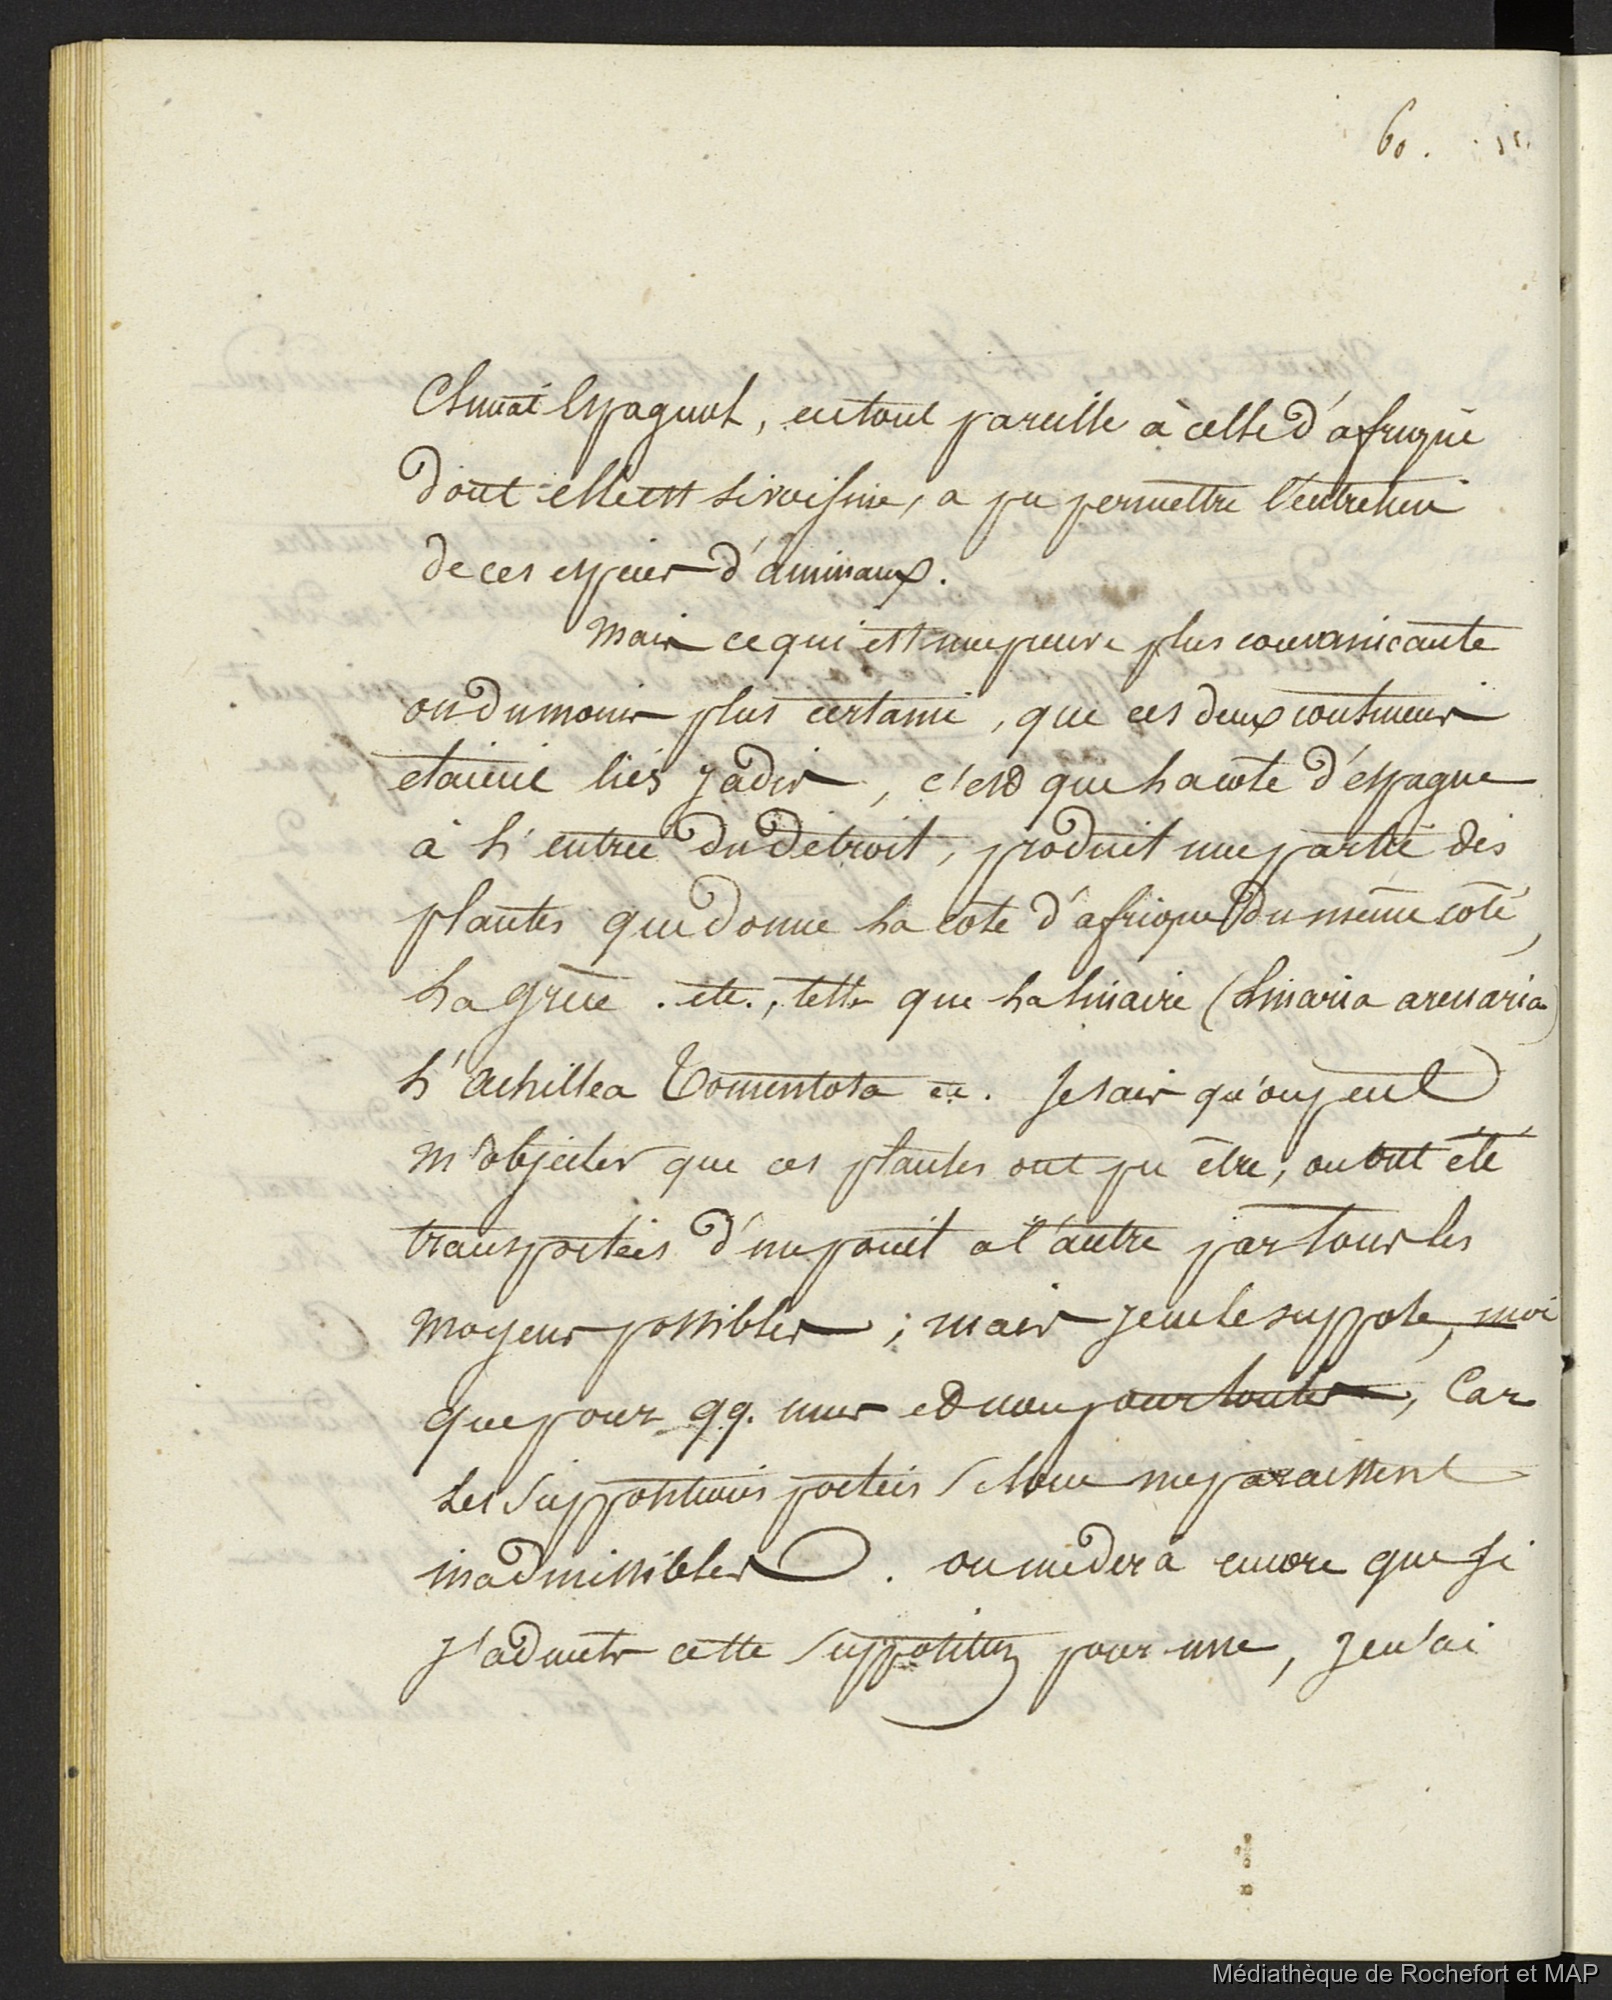 60.
Climat Espagnol, en tout pareille à celle d'afrique
dont elle est si voisine, a pu permettre l'entretien
de ces espèces d'animaux.
Mais ce qui est une preuve plus convainicante
ou du moins plus certaine, que ces deux continens
etaient liés jadis, c'est que la cote d'espagne
à l'entrée du détroit, produit une partie des
plantes que donne la cote d'afrique du même coté,
la grèce. etc., telle que la linaire (Linaria arenaria)
l'achillea Tomentosa etc. Je sais qu'on peut
m'objecter que ces plantes ont pu être, ou ont été
transportées d'un point a l'autre par tous les
moyens possibles; mais je ne le suppose, moi
que pour qq. unes et non pour toutes, Car
les suppositions portées si loin me paraissent
inadmissibles. on me dira encore que si
j'admets cette supposition pour une, je n'ai
Médiathèque de Rochefort et MAP